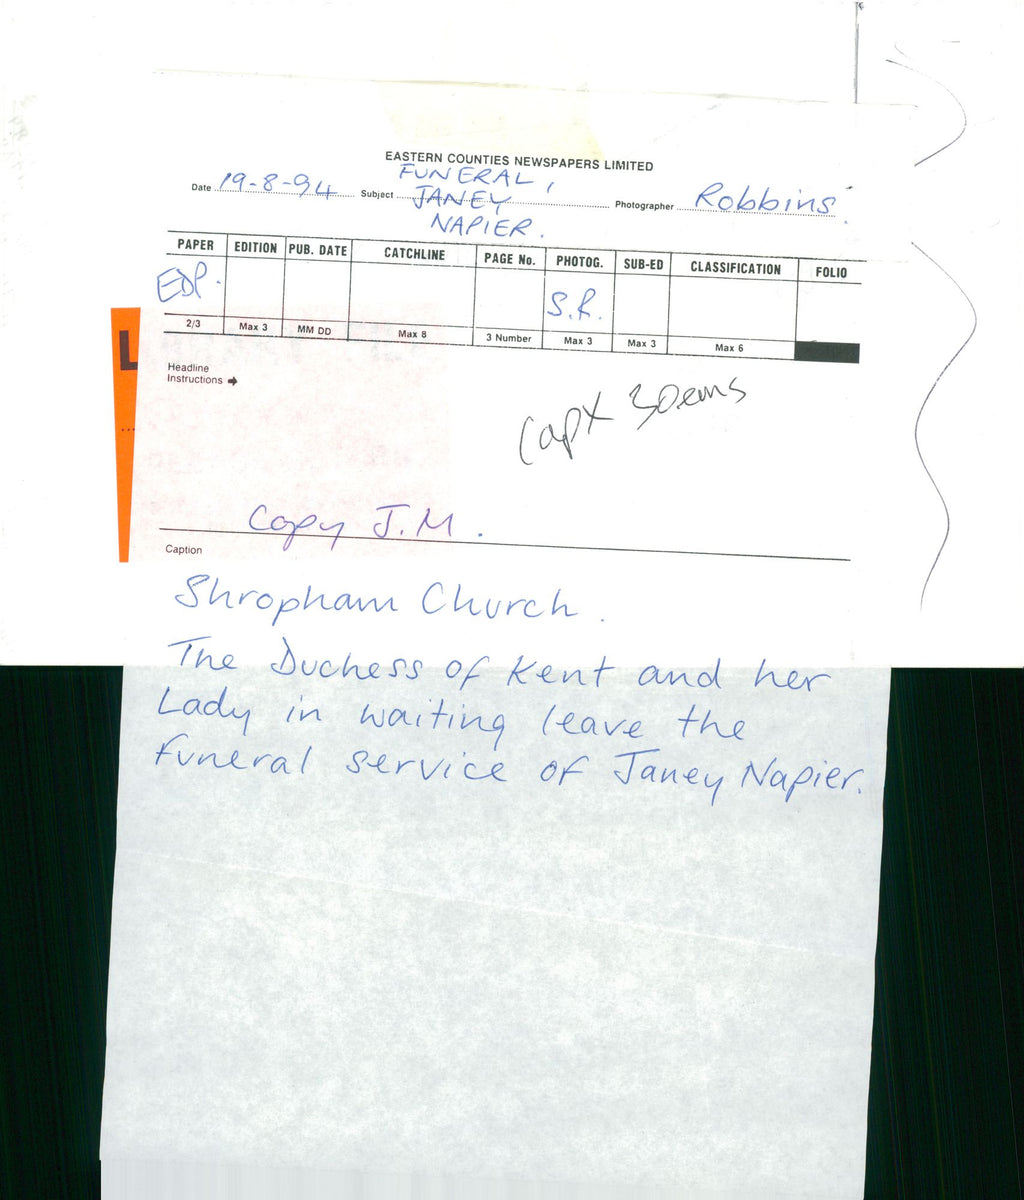 EASTERN COUNTIES NEWSPAPERS LIMITED
Date 19-8-94 Subject FUNERAL, Photographer Robbins
JANEY
NAPIER.
PAPER EDITION PUB. DATE CATCHLINE PAGE No. PHOTOG. SUB-ED CLASSIFICATION FOLIO
EDP. S.R.
2/3 Max 3 MM DD Max 8 3 Number Max 3 Max 3 Max 6
L
Headline
Instructions
Capx 30ems
Copy J.M.
Caption
Shropham Church.
The Duchess of Kent and her
Lady in waiting leave the
funeral service of Janey Napier.